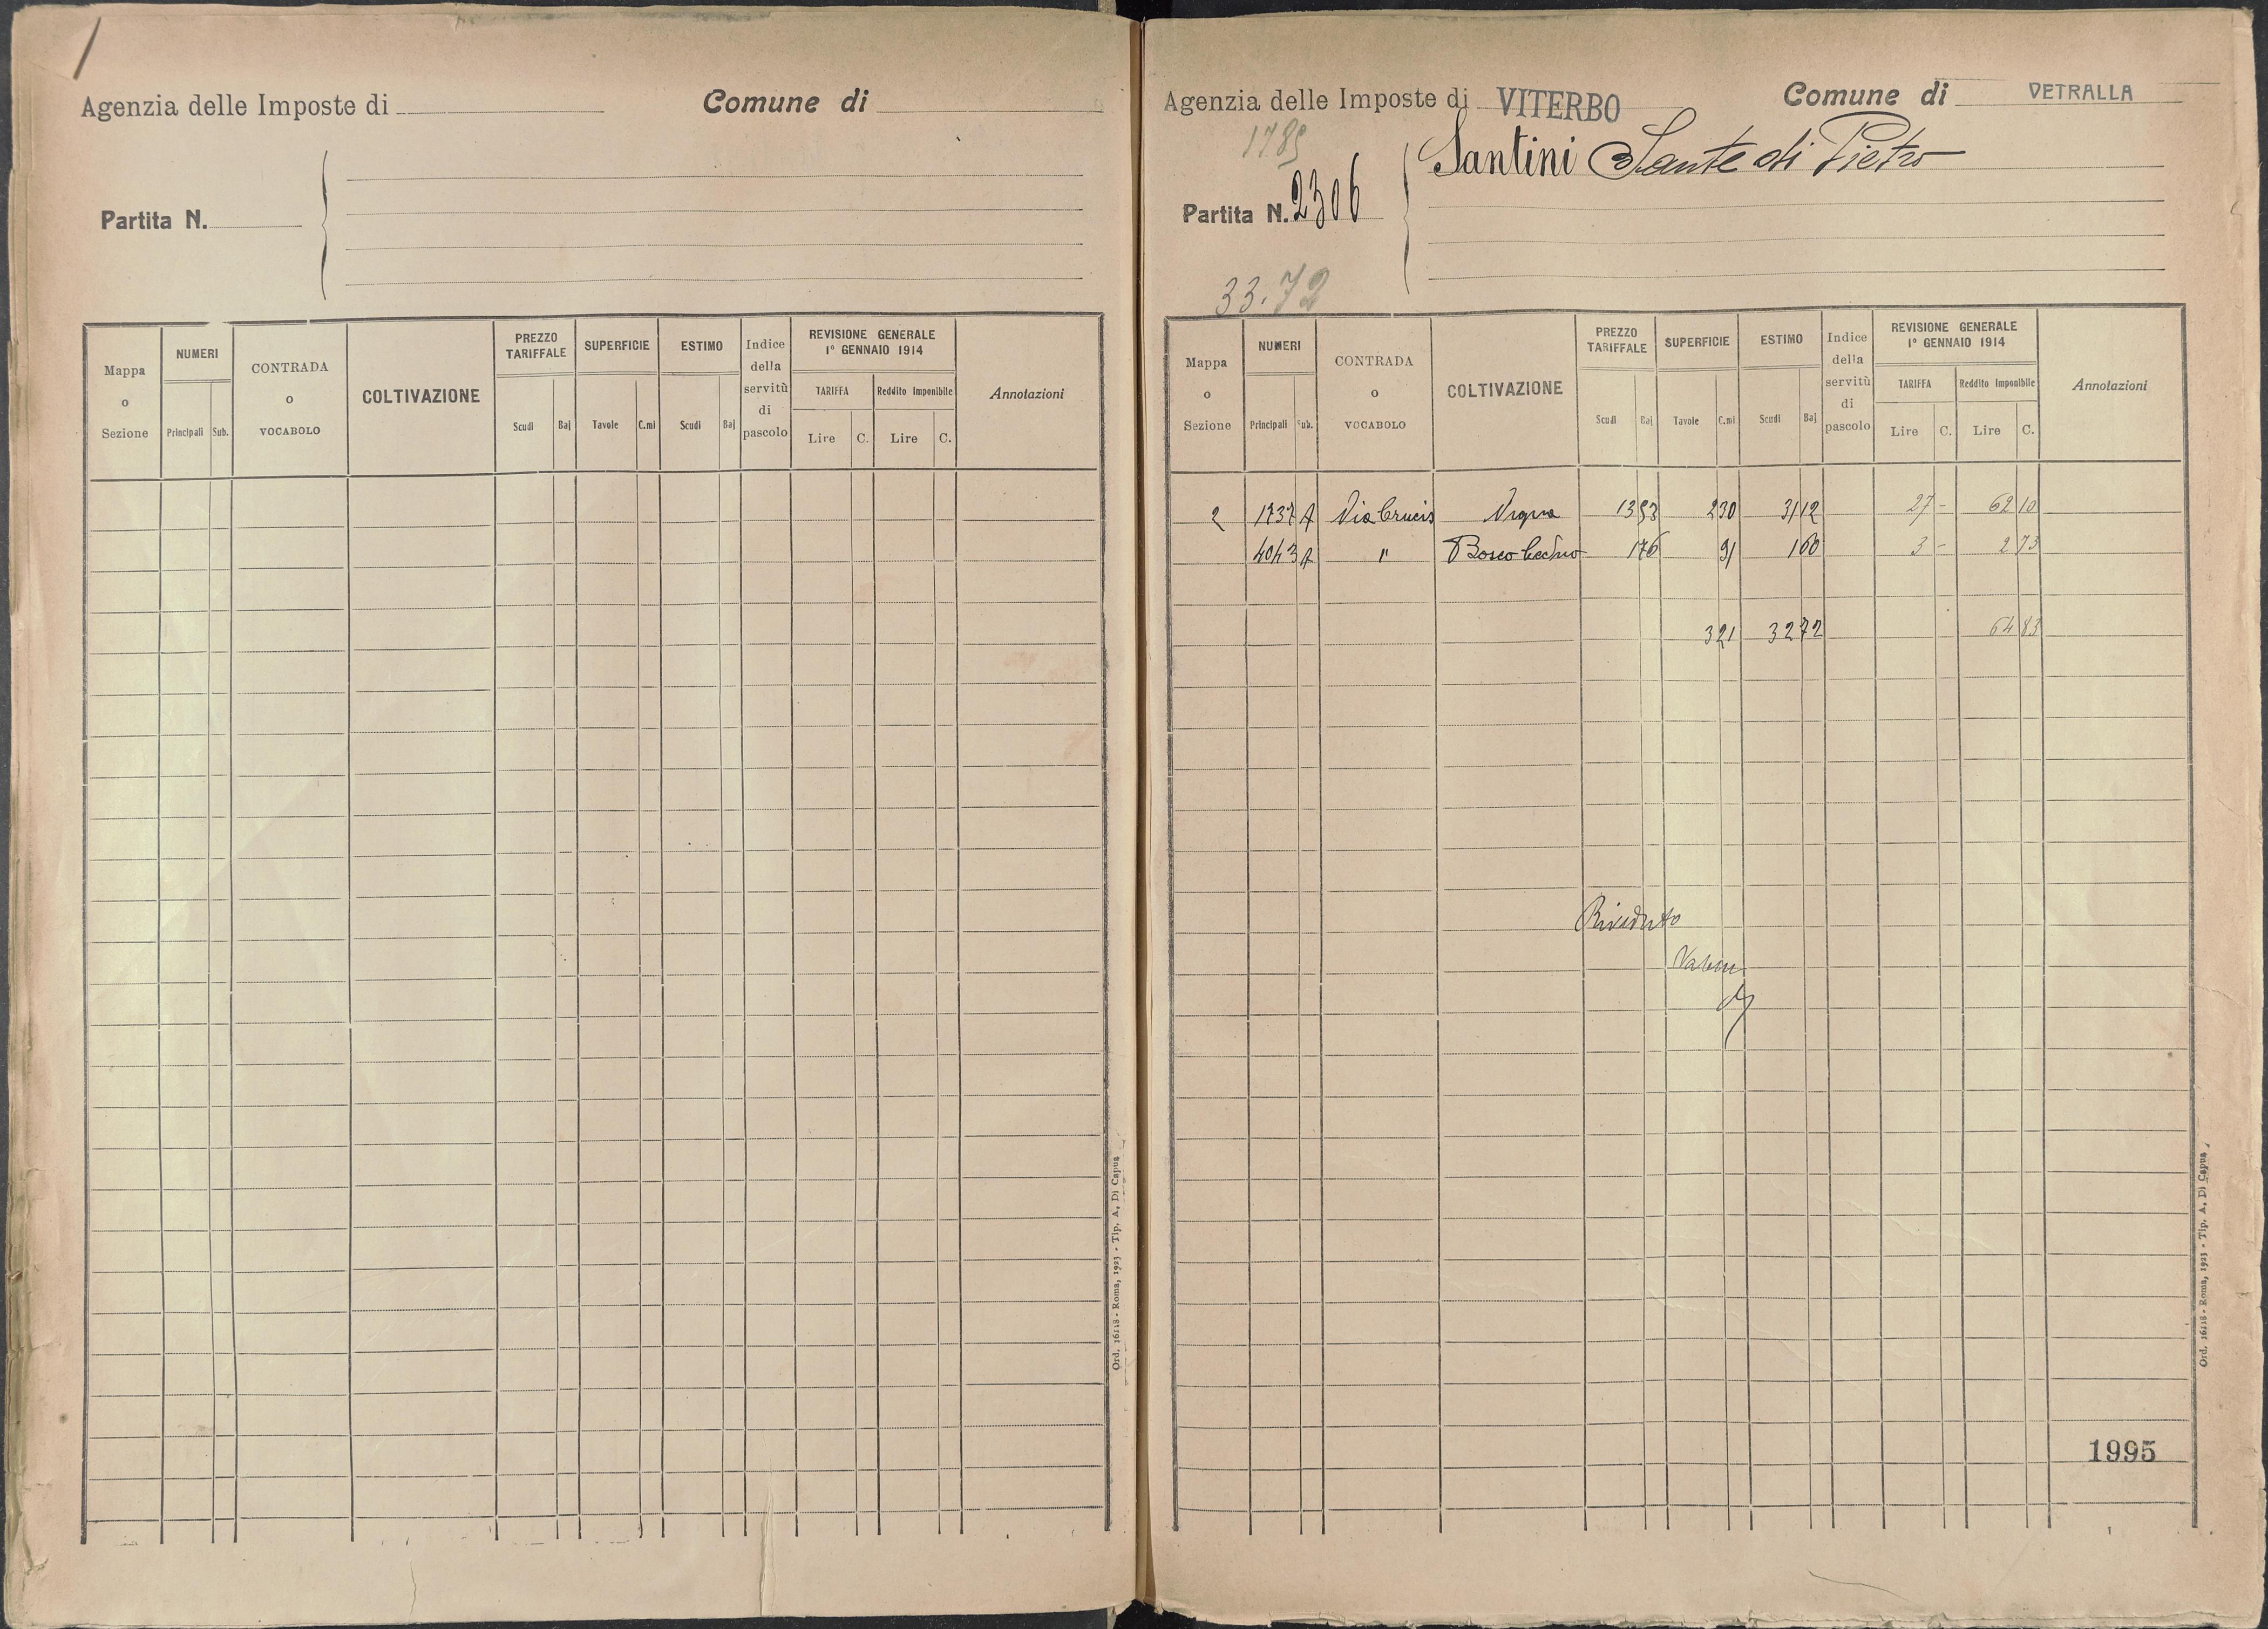 Agenzia delle Imposte di
Comune di
Partita N.
Mappa o Sezione
NUMERI
Principali Sub.
CONTRADA o VOCABOLO
COLTIVAZIONE
PREZZO TARIFFALE
Scudi Baj
SUPERFICIE
Tavole C.mi
ESTIMO
Scudi Baj
Indice della servitù di pascolo
REVISIONE GENERALE
1° GENNAIO 1914
TARIFFA Reddito Imponibile
Lire C. Lire C.
Annotazioni
Ord. 16518 - Roma, 1923 - Tip. A. Di Capua
Agenzia delle Imposte di VITERBO
Comune di VETRALLA
1785
Santini Sante di Pietro
Partita N. 2306
33.72
Mappa o Sezione
NUMERI
Principali Sub.
CONTRADA o VOCABOLO
COLTIVAZIONE
PREZZO TARIFFALE
Scudi Baj
SUPERFICIE
Tavole C.mi
ESTIMO
Scudi Baj
Indice della servitù di pascolo
REVISIONE GENERALE
1° GENNAIO 1914
TARIFFA Reddito Imponibile
Lire C. Lire C.
Annotazioni
2 1737 A Via Crucis Vigna 13 53 2 30 31 12 27 - 62 10
4043 A " Bosco Ceduo 1 76 91 1 60 3 - 2 73
3 21 32 72 64 83
Riveduto
1995
Ord. 16518 - Roma, 1923 - Tip. A. Di Capua